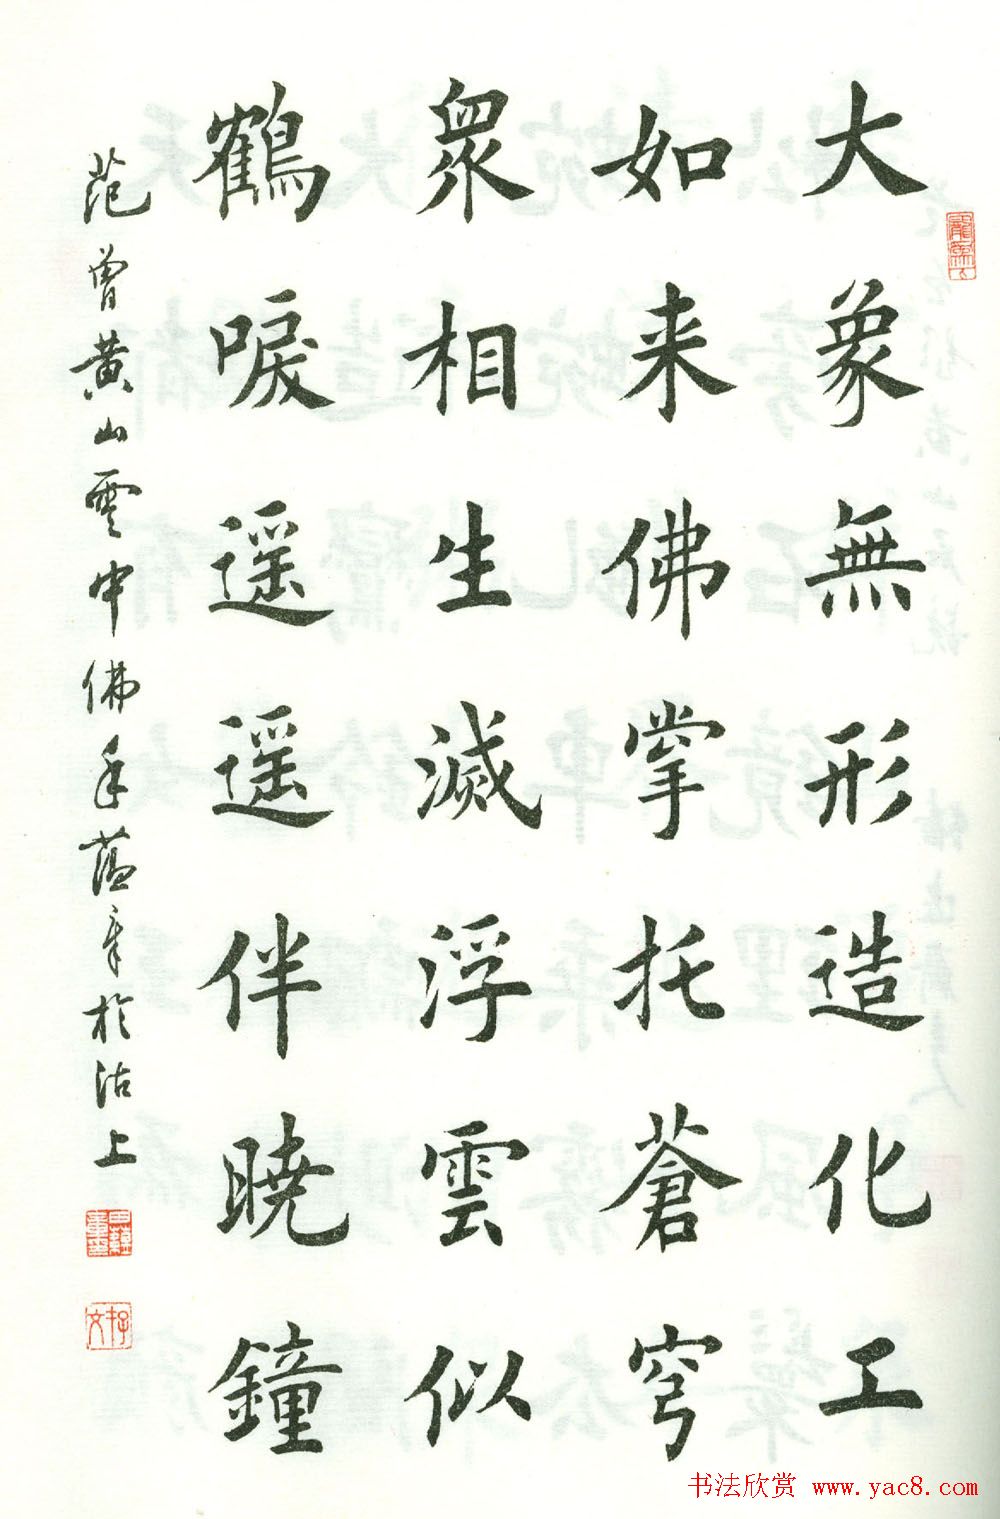 大象無形造化工
如来佛掌托蒼穹
衆相生滅浮雲似
鶴唳遥遥伴暁鐘
范曾黄山雲中佛手蕴章於沽上
书法欣赏 www.yac8.com